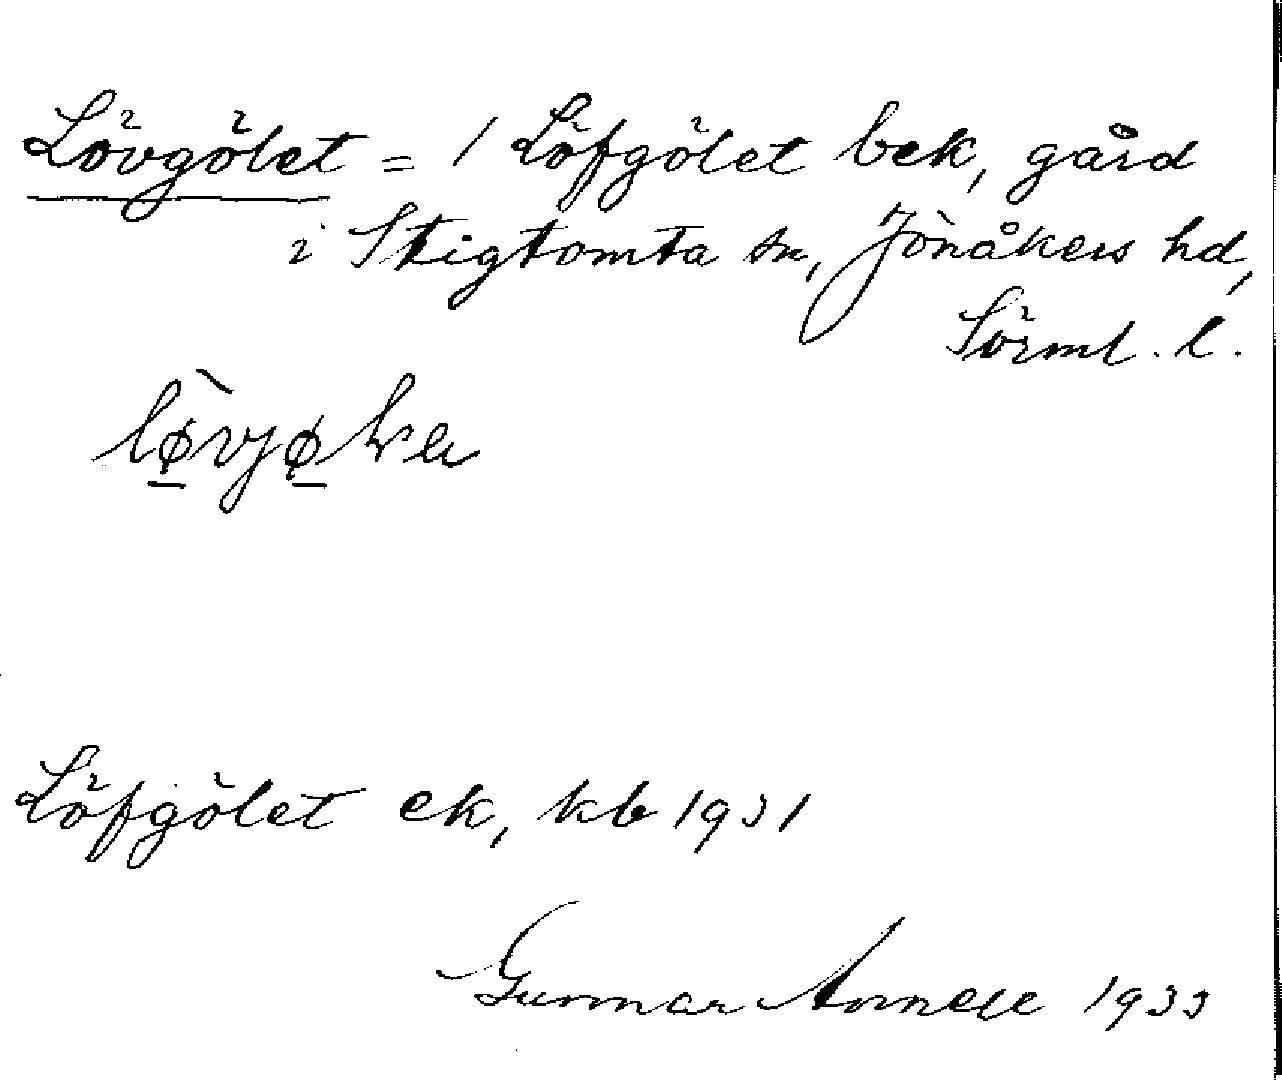 Lövgölet = / Löfgölet bek, gård
i Stigtomta sn, Jönåkers hd,
Sörml. l.
Löfgölet ek, kb 1931
Gunnar 1933